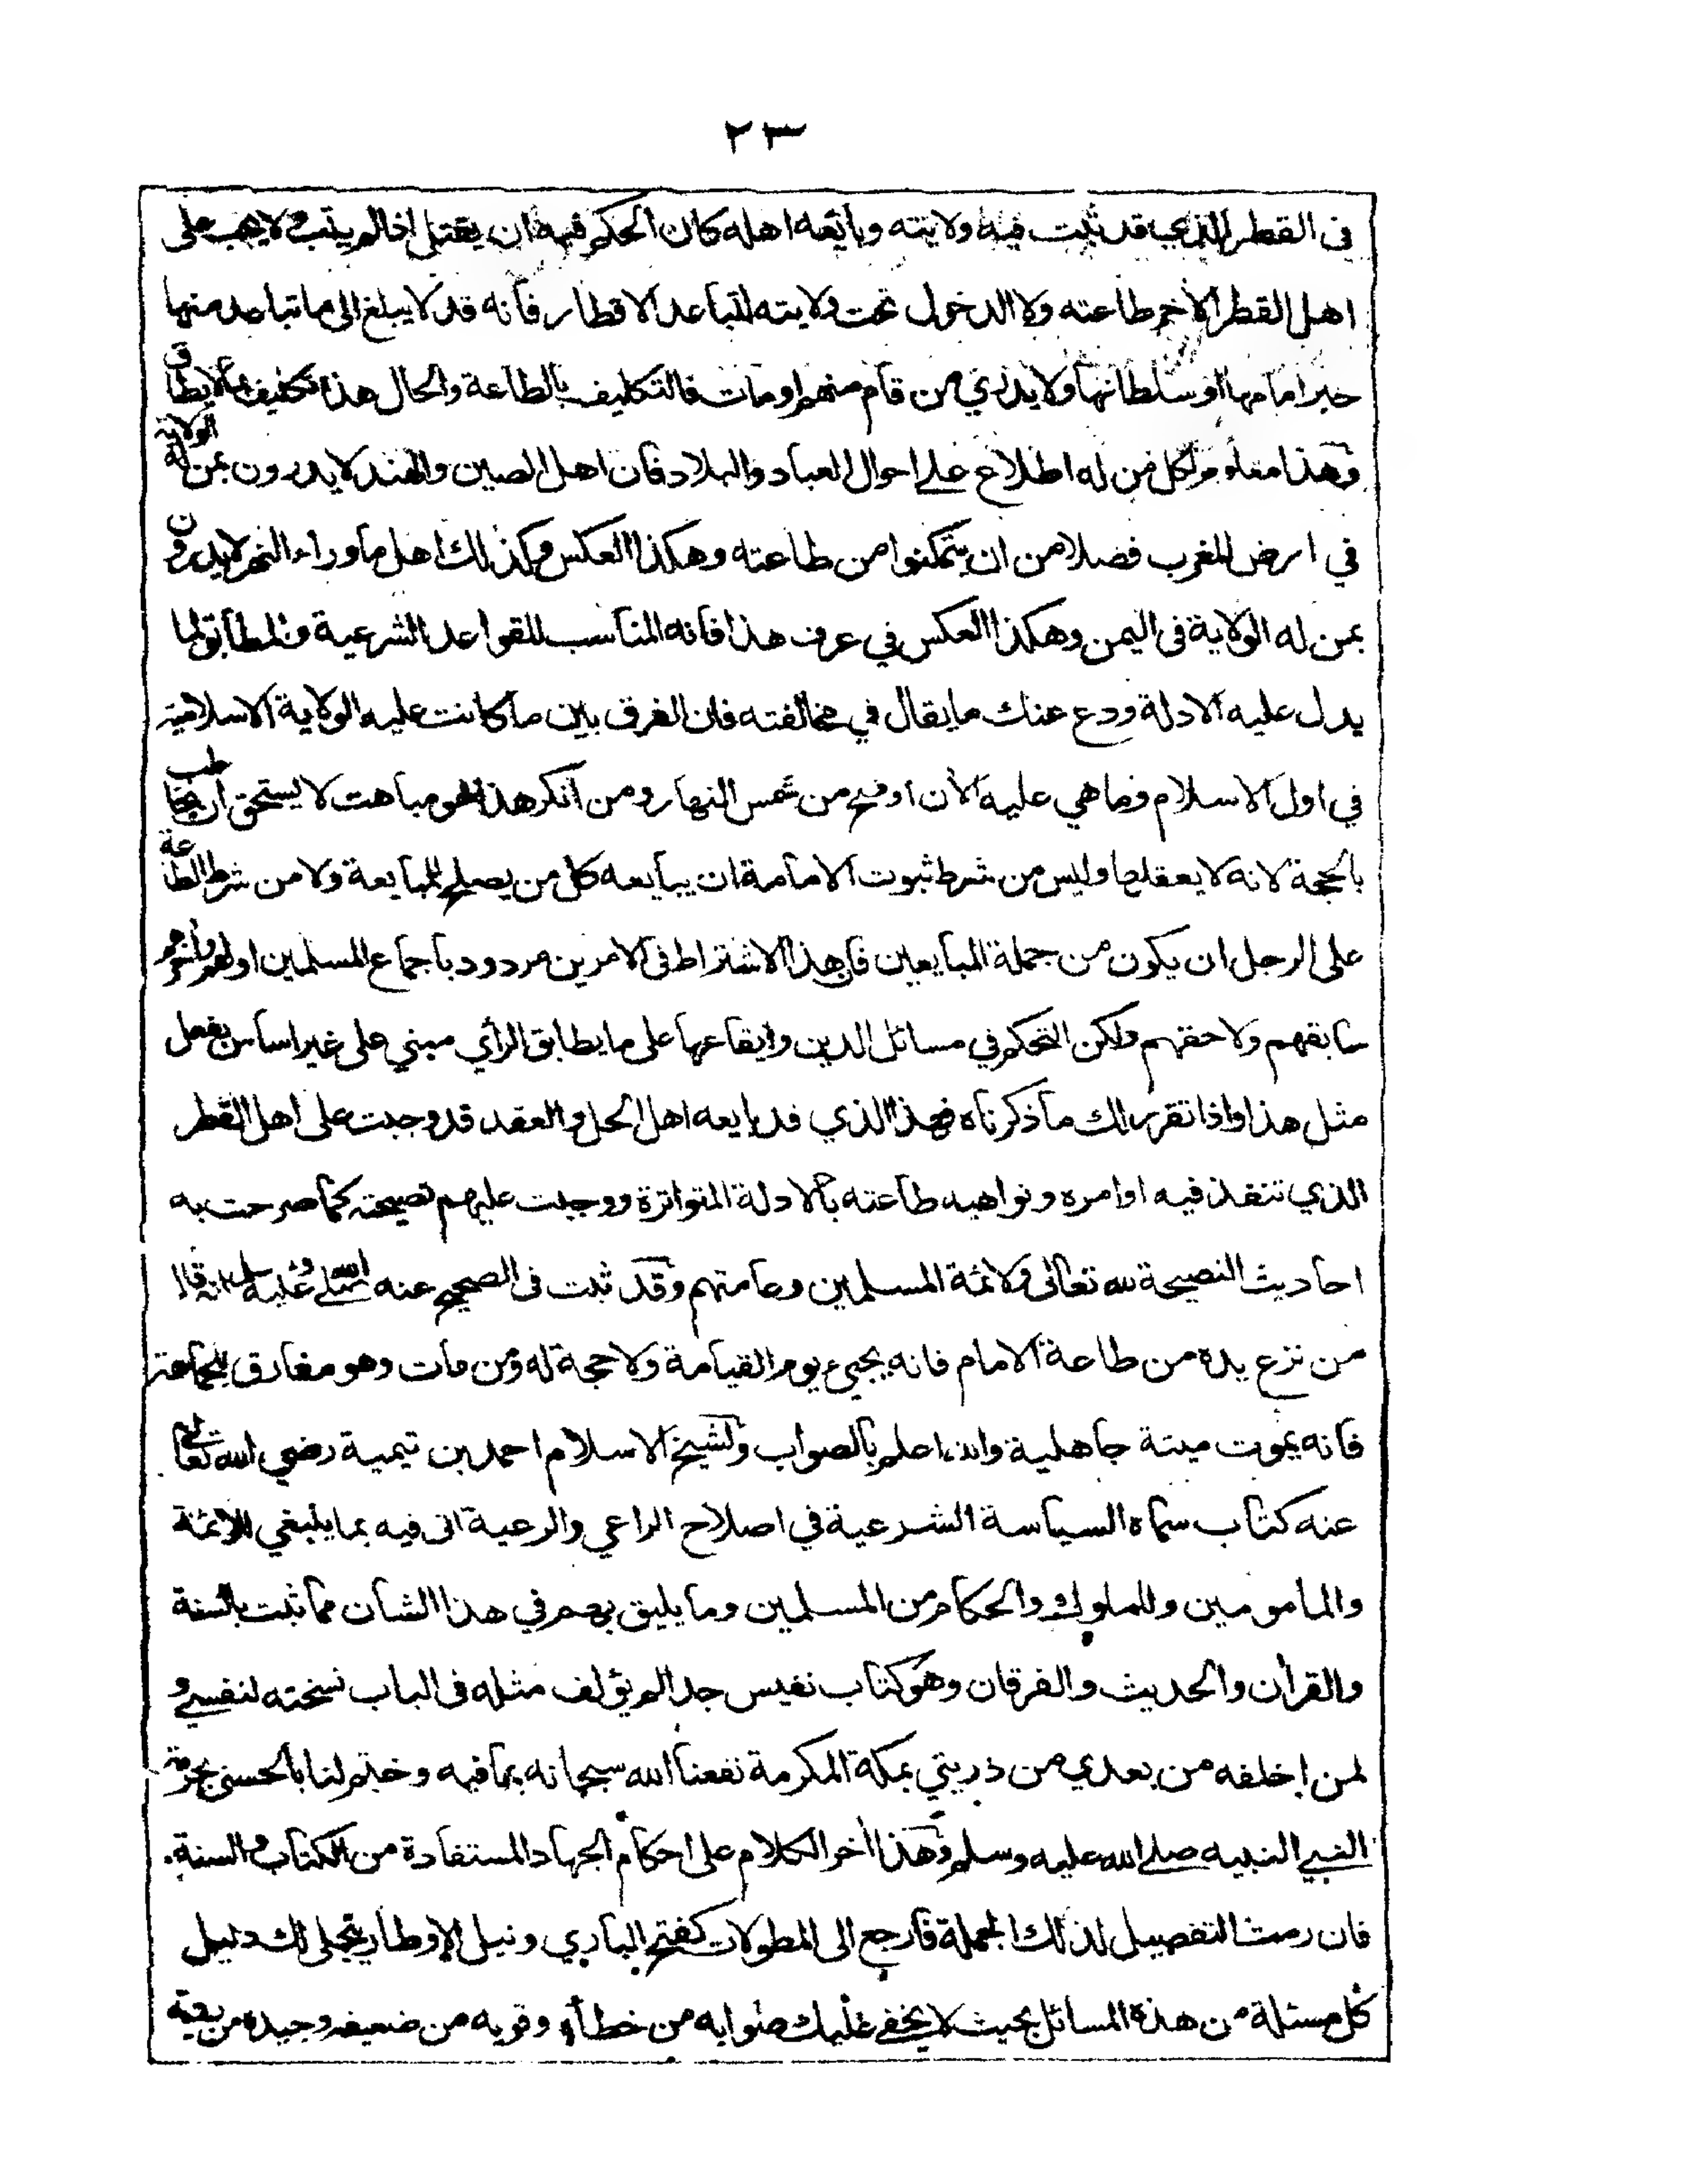 ٢٣
فى القطر الذي قد ثبت فيه ولايته وبايعه اهله كان الحكم فيه ان يقتل اذا لم يتب ولا يجب على
اهل القطر الاخر طاعته ولا الدخول تحت ولايته لتباعد الاقطار فانه قد لا يبلغ الى ما تباعد منها
خبر امامها او سلطانها ولا يدري من قام منهم او مات فالتكليف بالطاعة والحال هذا تكليف بما لا يطاق
وهذا معلوم لكل من له اطلاع على احوال العباد والبلاد فان اهل الصين والهند لا يدرون بمن له الولاية
في ارض المغرب فضلا من ان يتمكنوا من طاعته وهكذا العكس وكذلك اهل ما وراء النهر لا يدرون
بمن له الولاية فى اليمن وهكذا العكس في عرف هذا فانه المناسب للقواعد الشرعية والمطابق لما
يدل عليه الادلة ودع عنك ما يقال في مخالفته فان الفرق بين ما كانت عليه الولاية الاسلامية
في اول الاسلام وما هي عليه الأن اوضح من شمس النهار ومن انكر هذا فهو مباهت لا يستحق ان يخاطب
بالحجة لانه لا يعقلها وليس من شرط ثبوت الامامة ان يبايعه كل من يصلح للمبايعة ولا من شرط الطاعة
على الرجل ان يكون من جملة المبايعين فان هذا الاشتراط فى الامرين مردود باجماع المسلمين اولهم واخرهم
سابقهم ولاحقهم ولكن التحكم في مسائل الدين وايقاعها على ما يطابق الرأي مبني على غير اساس يفعل
مثل هذا واذا تقرر لك ما ذكرناه فهذا الذي قد بايعه اهل الحل والعقد قد وجبت على اهل القطر
الذي تنفذ فيه اوامره ونواهيه طاعته بالادلة المتواترة ووجبت عليهم نصيحته كما صرحت به
احاديث النصيحة لله تعالى ولائمة المسلمين وعامتهم وقد ثبت فى الصحيح عنه صلى الله عليه وسلم انه قال
من نزع يده من طاعة الامام فانه يجيء يوم القيامة ولا حجة له ومن مات وهو مفارق للجماعة
فانه يموت ميتة جاهلية والله اعلم بالصواب ولشيخ الاسلام احمد بن تيمية رضي الله تعالى
عنه كتاب سماه السياسة الشرعية في اصلاح الراعي والرعية اتى فيه بما ينبغي للائمة
والمامومين وللملوك والحكام من المسلمين وما يليق بهم في هذا الشان مما ثبت بالسنة
والقرأن والحديث والفرقان وهو كتاب نفيس جدا لم يؤلف مثله فى الباب نسخته لنفسي و
لمن اخلفه من بعدي من ذريتي بمكة المكرمة نفعنا الله سبحانه بما فيه وختم لنا بالحسنى بحرمة
النبي النبيه صلى الله عليه وسلم وهذا أخر الكلام على احكام الجهاد المستفادة من الكتاب والسنة.
فان رمت التفصيل لذلك الجملة فارجع الى المطولات كفتح الباري ونيل الاوطار يتجلى لك دليل
كل مسئلة من هذه المسائل بحيث لا يخفى عليك صوابه من خطأه وقويه من ضعيفه وجيده من بقية